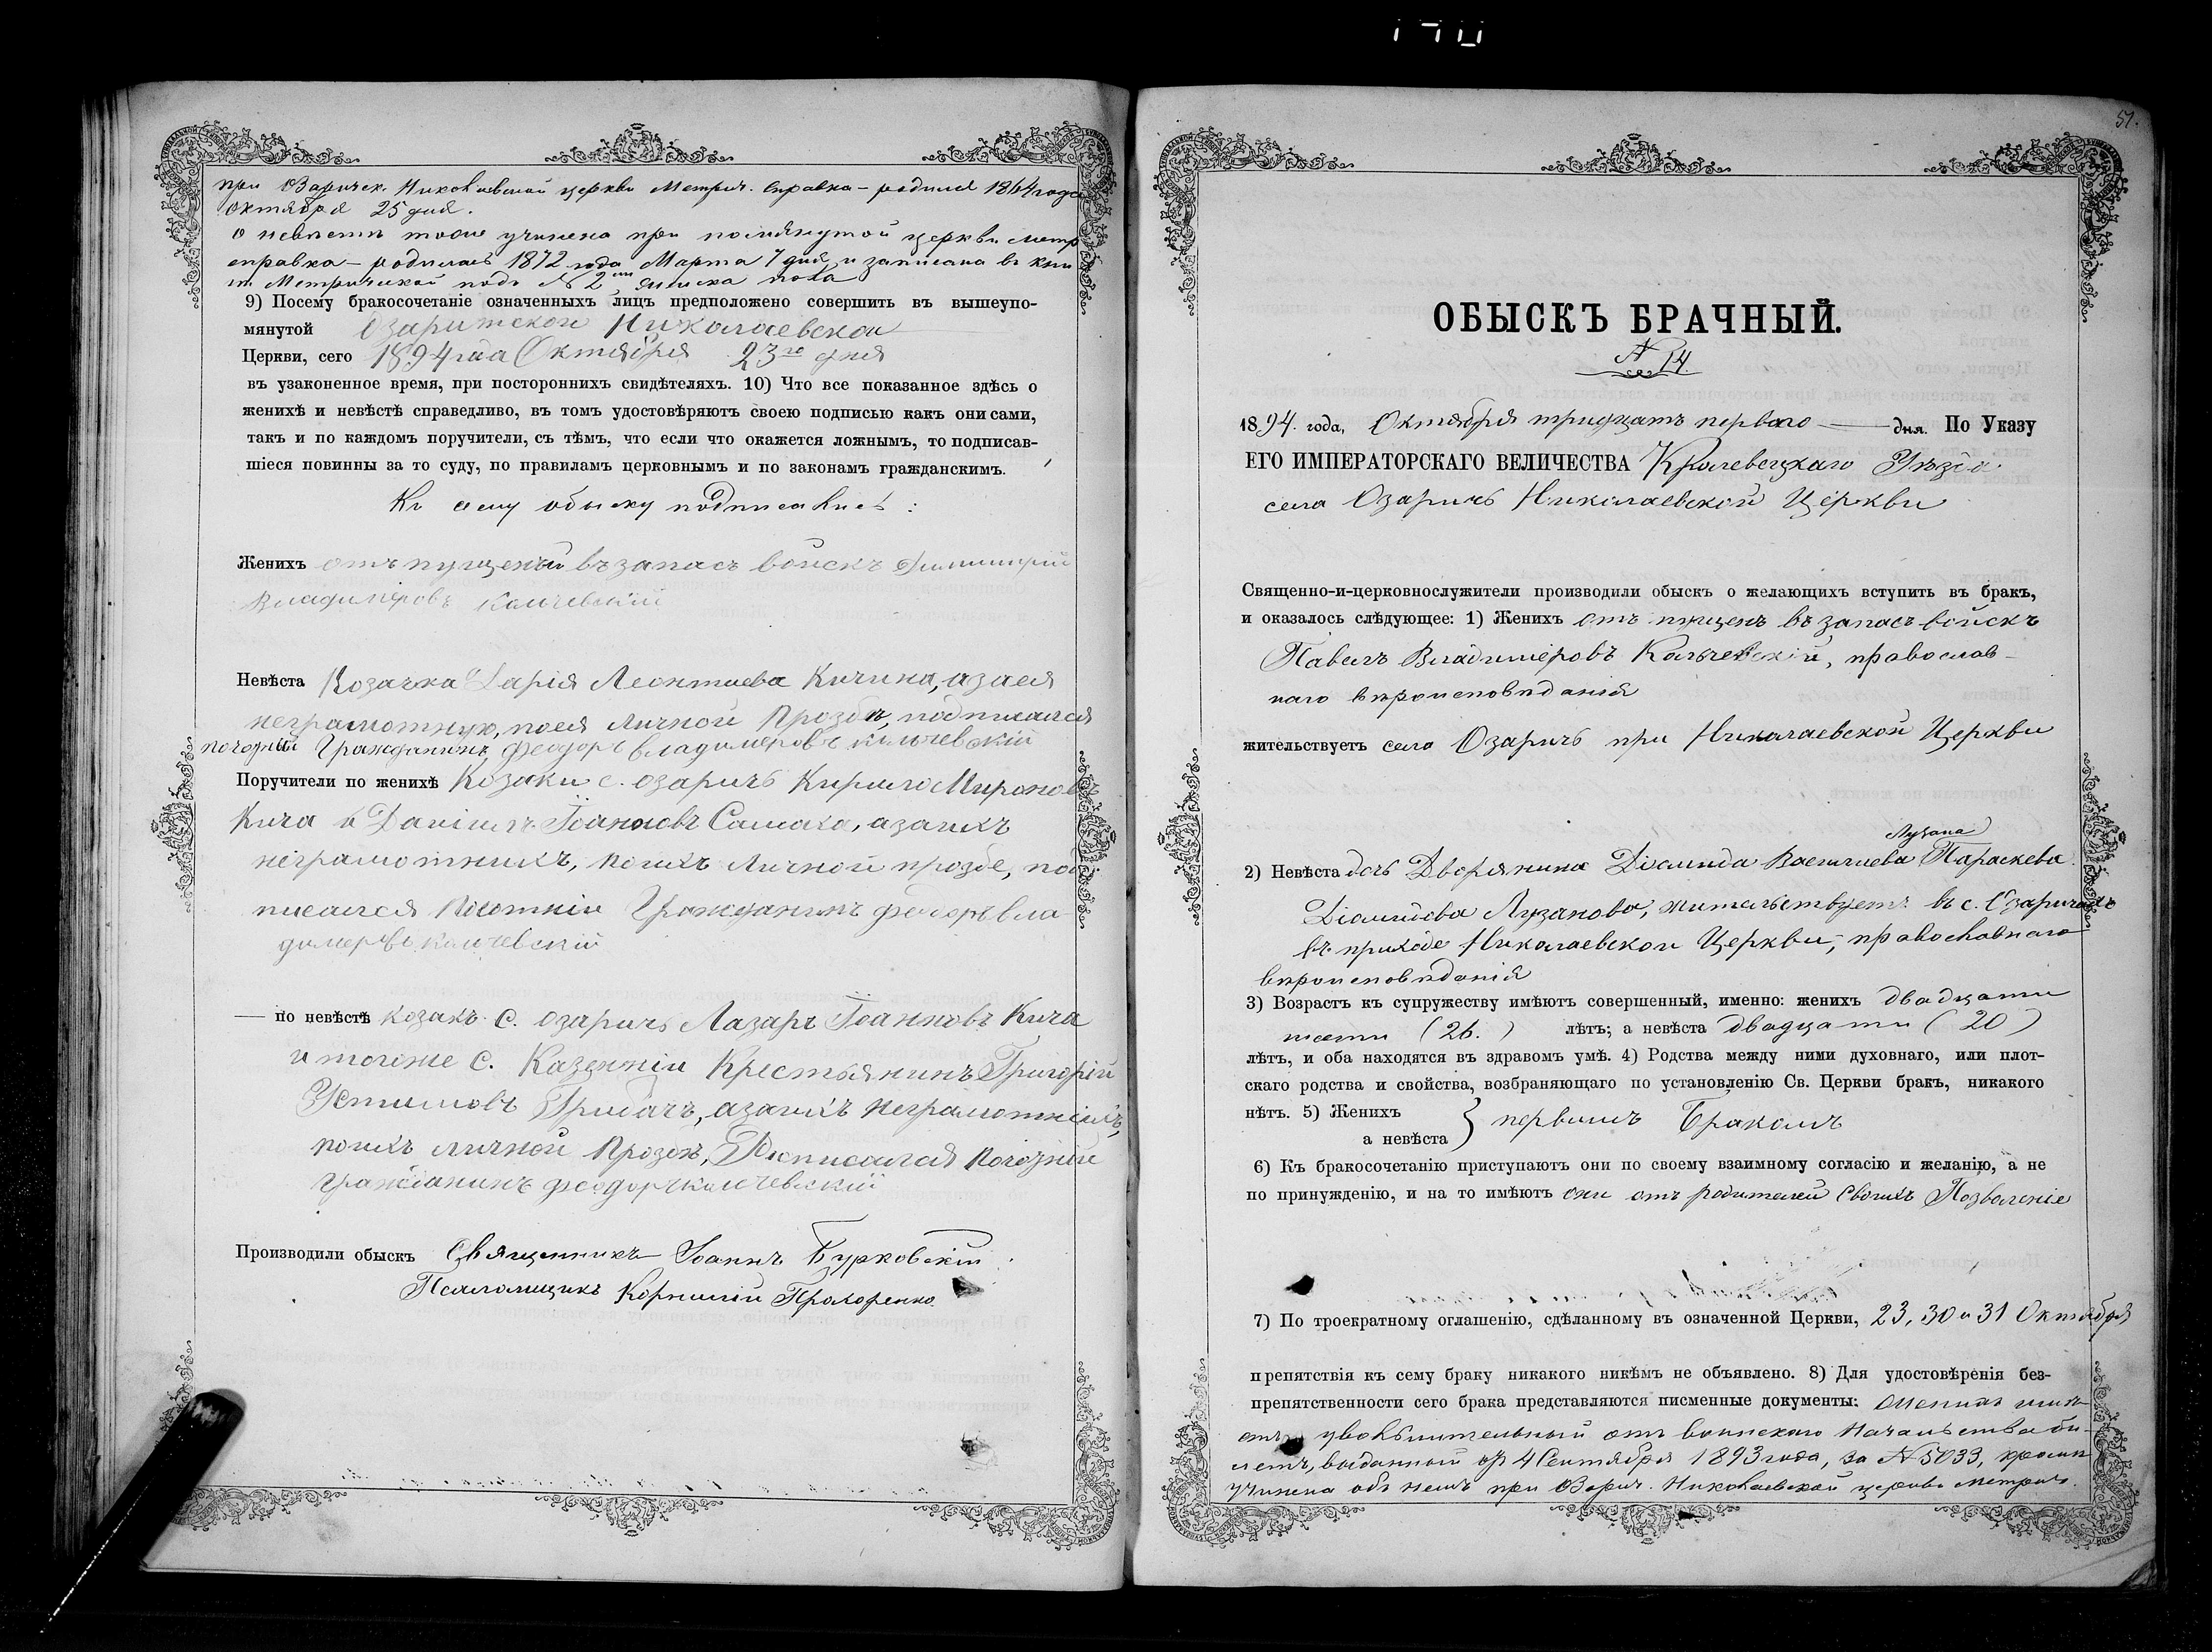 при Озарическ. Николаевской церкви Метрич. справка – родился 1864 года
Октября 25 дня.
О невѣстѣ тоже учинена при помянутой церкви метр
справка – родилась 1872 года Марта 7 дня, и записана въ кни
Метрической подъ № 2
9) Посему бракосочетаніе означенныхъ лицъ предположено совершить въ вышеупо-
мянутой Озаритской Николаевской
Церкви, сего 1894 года Октября 23го дня
въ узаконенное время, при постороннихъ свидѣтеляхъ. 10) Что все показанное здѣсь о
женихѣ и невѣстѣ справедливо, въ томъ удостовѣряютъ своею подписью какъ они сами,
такъ и по каждомъ поручители, съ тѣмъ, что если что окажется ложнымъ, то подписав-
шіеся повинны за то суду, по правиламъ церковнымъ и по законамъ гражданскимъ.
Къ сему обыску подписались:
Женихъ отъпущеный въ запасъ войскъ Димитрій
Владимѣровъ Калчевскій
Невѣста Козачка Дарія Леонтиева Кичина, азаея
неграмотную, поея Личной Прозбѣ, подписался
почодный Гражданинъ Феодоръ владимѣровъ кальчевскій
Поручители по женихѣ Козаки с. озаричъ Кирило Мироновъ
Кича и Даніилъ Іоанновъ Самаха, азаихъ
неграмотнихъ, поихъ Личной прозбе, под
писался Гражданинъ феодоръ вла
димеровъ калчевскій
— по невѣстѣ козакъ с. озаричъ Лазарь Іоанновъ Кича
и тогоже с. Казенній Крестьянинъ Григорій
Устимовъ Грибачъ, азаихъ неграмотніихъ,
поихъ личной Прозбѣ, Росписался почодній
Гражданинъ феодоръ калчевскій
Производили обыскъ Священникъ Іоаннъ Бурковскій
Псаломщикъ Корнилій Прохоренко
51.
ОБЫСКЪ БРАЧНЫЙ.
№ 14.
1894. года, Октября тридцать перваго дня. По Указу
ЕГО ИМПЕРАТОРСКАГО ВЕЛИЧЕСТВА Кролевецкаго Уѣзда
села Озаричъ Николаевской Церкви
Священно-и-церковнослужители производили обыскъ о желающихъ вступить въ бракъ,
и оказалось слѣдующее: 1) Женихъ отъ пущенъ въ запасъ войскъ
Павелъ Владимѣровъ Кальчевскій, православ-
наго вѣроисповѣданія
жительствуетъ село Озаричъ при Николаевской Церкви
Лузана
2) Невѣста дочь Дворянина Діомида Василиева Параскева
Діомидова Лузанова, жительствуетъ въ с. Озаричахъ
въ приходе Николаевской Церкви, православнаго
вѣроисповѣданія
3) Возрастъ къ супружеству имѣютъ совершенный, именно: женихъ двадцати
шести (26.) лѣтъ; а невѣста двадцати (20)
лѣтъ, и оба находятся въ здравомъ умѣ. 4) Родства между ними духовнаго, или плот-
скаго родства и свойства, возбраняющаго по установленію Св. Церкви бракъ, никакого
нѣтъ. 5) Женихъ
а невѣста } первымъ Бракомъ
6) Къ бракосочетанію приступаютъ они по своему взаимному согласію и желанію, а не
по принужденію, и на то имѣютъ они отъ родителей Своихъ Позволеніе
7) По троекратному оглашенію, сдѣланному въ означенной Церкви, 23, 30 и 31 Октября
препятствія къ сему браку никакого никѣмъ не объявлено. 8) Для удостовѣренія без-
препятственности сего брака представляются писменные документы:
увольнительный отъ воинскаго Начальства би-
летъ, выданный 4 Сентября 1893 года, за № 5033,
Учинена объ немъ при Озарич. Николаевской церкви метрич.